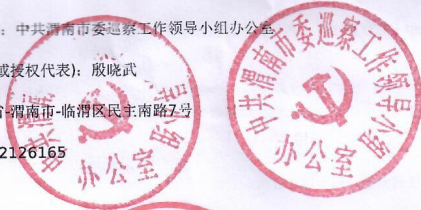 ：中共渭南市委巡察工作领导小组办公室
或授权代表）：殷晓武
省-渭南市-临渭区民主南路7号
2126165
中共渭南市委巡察工作领导小组
办公室
中共渭南
导小组
办公室